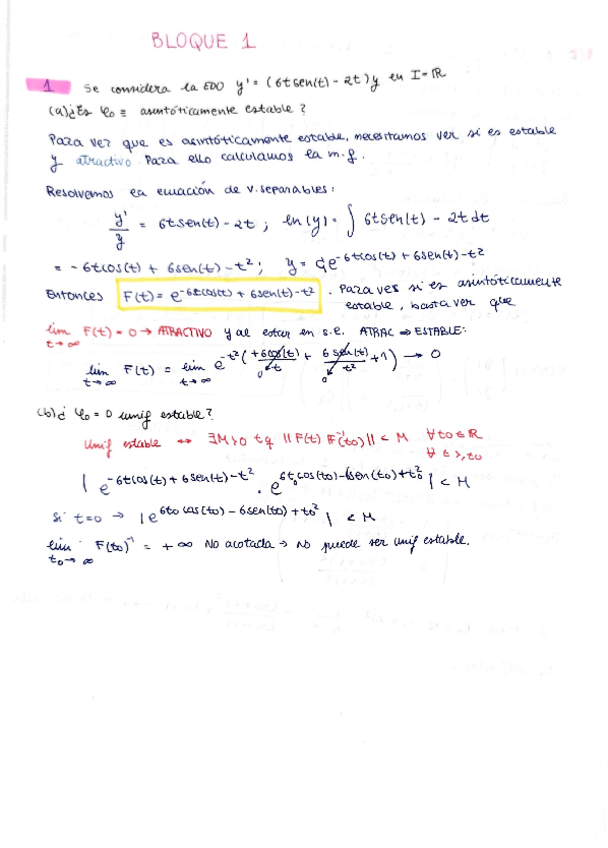 BLOQUE 1
1 Se considera la EDO y' = (6tsen(t) - 2t)y en I=ℝ
(a)¿Es φ₀ ≡ asintóticamente estable?
Para ver que es asintóticamente estable, necesitamos ver si es estable
y atractivo. Para ello calculamos la m.f.
Resolvemos la ecuación de v. separables:
y'/y = 6tsen(t) - 2t ; ln(y) = ∫ 6tsen(t) - 2t dt
= -6tcos(t) + 6sen(t) - t² ; y = C e^(-6tcos(t) + 6sen(t) - t²)
Entonces F(t) = e^(-6tcos(t) + 6sen(t) - t²) . Para ver si es asintóticamente
estable, basta ver que
lim t→∞ F(t) = 0 → ATRACTIVO y al estar en s.e. ATRAC ⇒ ESTABLE:
lim t→∞ F(t) = lim t→∞ e^(-t²(+6cos(t)/t + 6sen(t)/t² + 1)) → 0
(b)¿ φ₀ = 0 unif estable?
Unif estable ↔ ∃M>0 tq ||F(t) F⁻¹(t₀)|| < M ∀t₀∈ℝ
∀ t≥t₀
| e^(-6tcos(t) + 6sen(t) - t²) · e^(6t₀cos(t₀) - 6sen(t₀) + t₀²) | < M
Si t=0 → | e^(6t₀cos(t₀) - 6sen(t₀) + t₀²) | < M
lim t₀→∞ F(t₀)⁻¹ = +∞ No acotada → No puede ser unif estable.